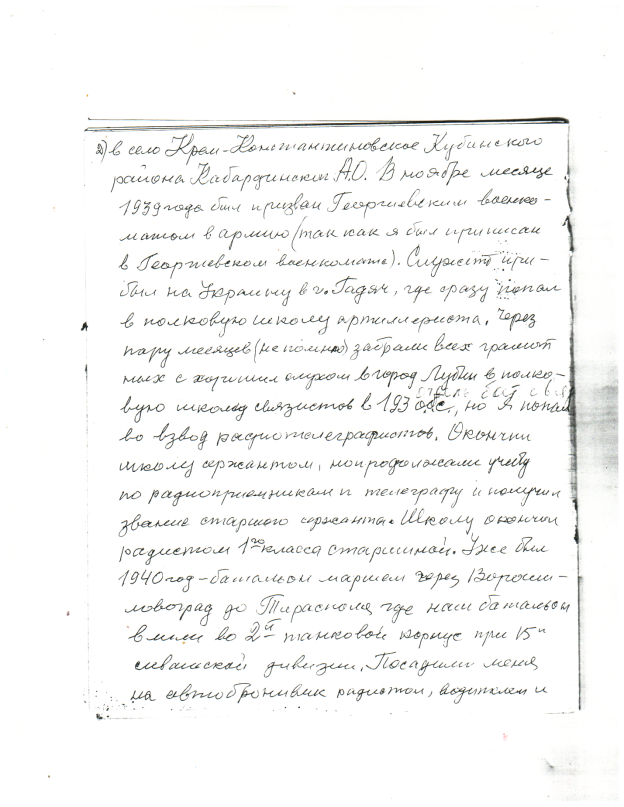 2) в село Крем-Константиновское Кубинского
района Кабардинской А.О. В ноябре месяце
1939 года был призван Георгиевским военко-
матом в армию (так как я был приписан
в Георгиевском военкомате). Служить при-
был на Украину в г. Гадяч, где сразу попал
в полковую школу артиллериста. Через
пару месяцев (не помню) забрали всех грамот
ных с хорошим слухом в город Лубны в полко-
вую школу связистов в 193 обс, но я попал
во взвод радиотелеграфистов. Окончил
школу сержантом, но продолжали учебу
по радиоприемникам и телеграфу и получил
звание старшего сержанта. Школу окончил
радистом 1го класса старшиной. Уже был
1940 год – батальон маршем через Вороши-
ловоград до Тирасполя, где наш батальон
влили во 2й танковой корпус при 15й
сивашской дивизии. Посадили меня
на автоброневик радистом, водителем и